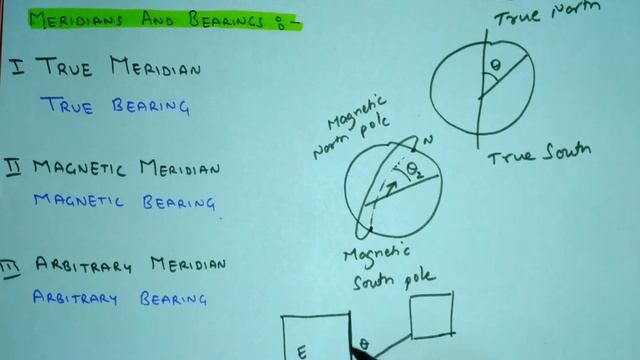 MERIDIANS AND BEARINGS :-
I TRUE MERIDIAN
TRUE BEARING
II MAGNETIC MERIDIAN
MAGNETIC BEARING
III ARBITRARY MERIDIAN
ARBITRARY BEARING
True North
θ
True South
Magnetic
North pole
N
θ2
Magnetic
South pole
θ
E